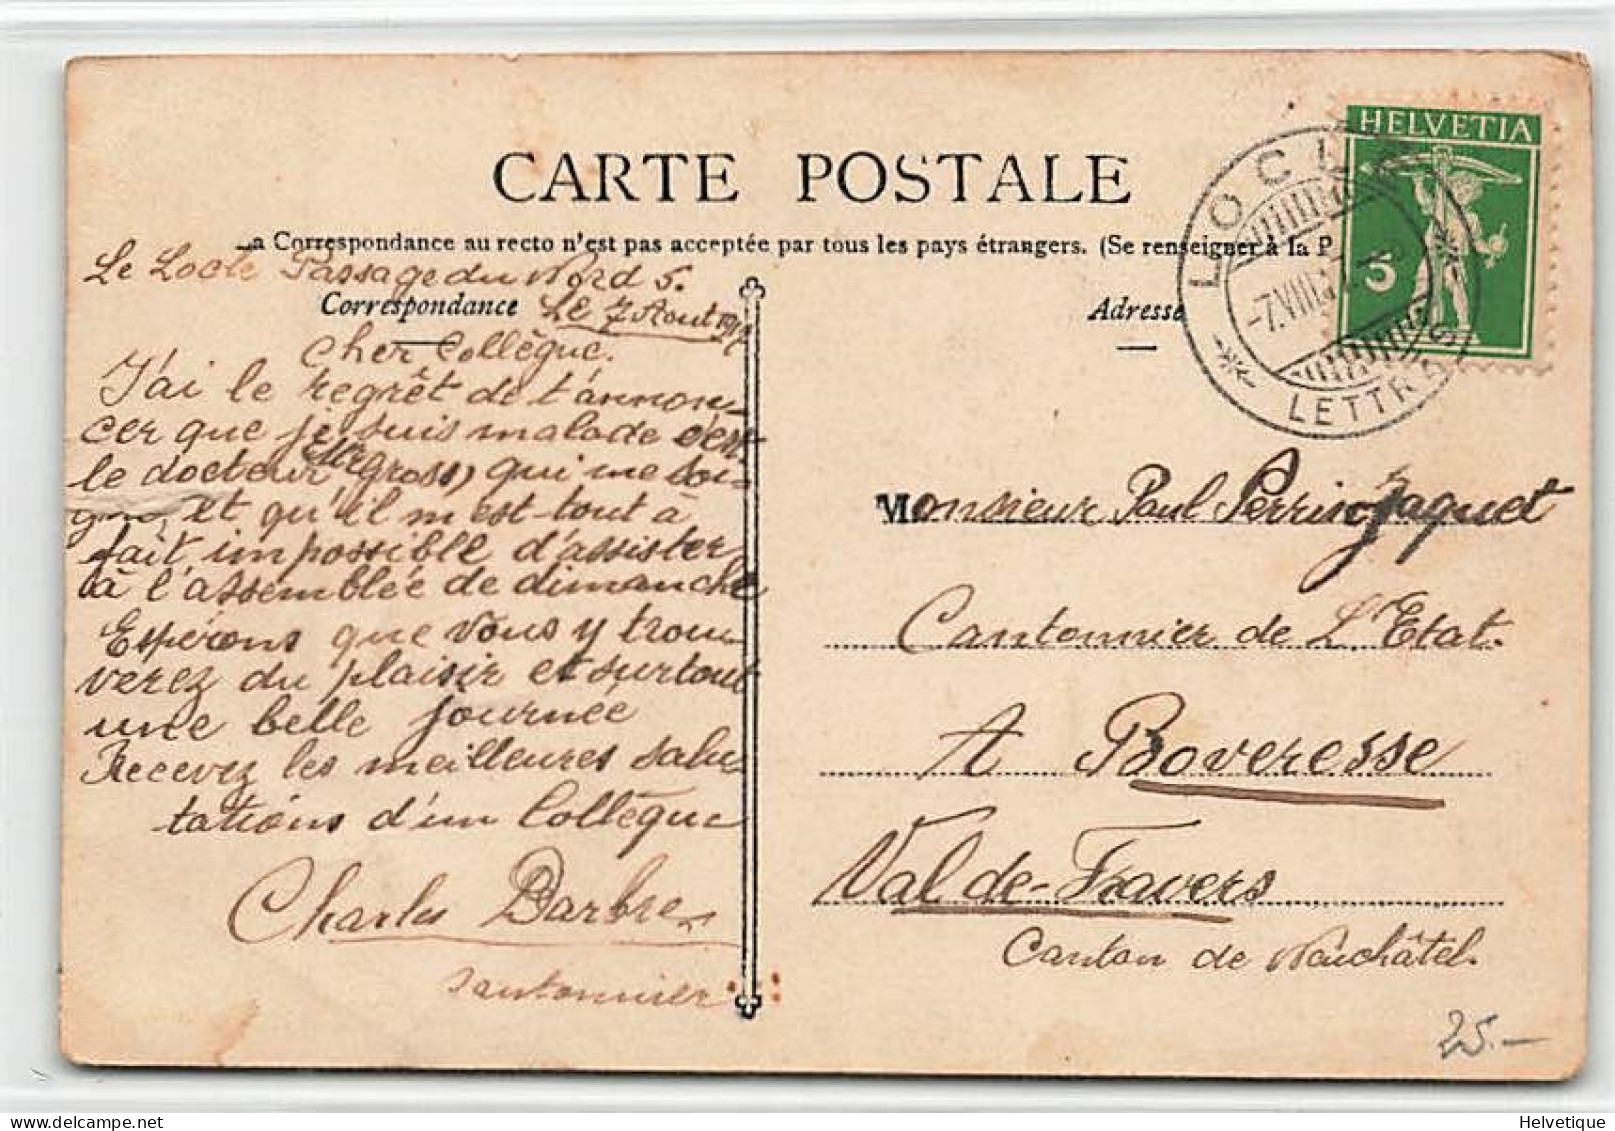 CARTE POSTALE
La Correspondance au recto n'est pas acceptée par tous les pays étrangers. (Se renseigner à la P
Le Locle Passage du Nord 5.
Correspondance
Le 7 Aout
Cher Collègue.
J'ai le regrêt de t'annon-
cer que je suis malade c'est
le docteur Mr Gross, qui me soi-
gne, et qu'il m'est tout à
fait impossible d'assister
à l'assemblée de dimanche
Espérons que vous y trou-
verez du plaisir et surtout
une belle journée
Recevez les meilleures salu-
tations d'un Collègue
Charles Barbre
Cantonnier
Adresse
HELVETIA
5
LOCLE
-7.VIII
LETTRES
Monsieur Paul Perrinjaquet
Cantonnier de L'Etat.
A Boveresse
Val de-Travers
Canton de Neuchâtel.
25.-
Helvetique